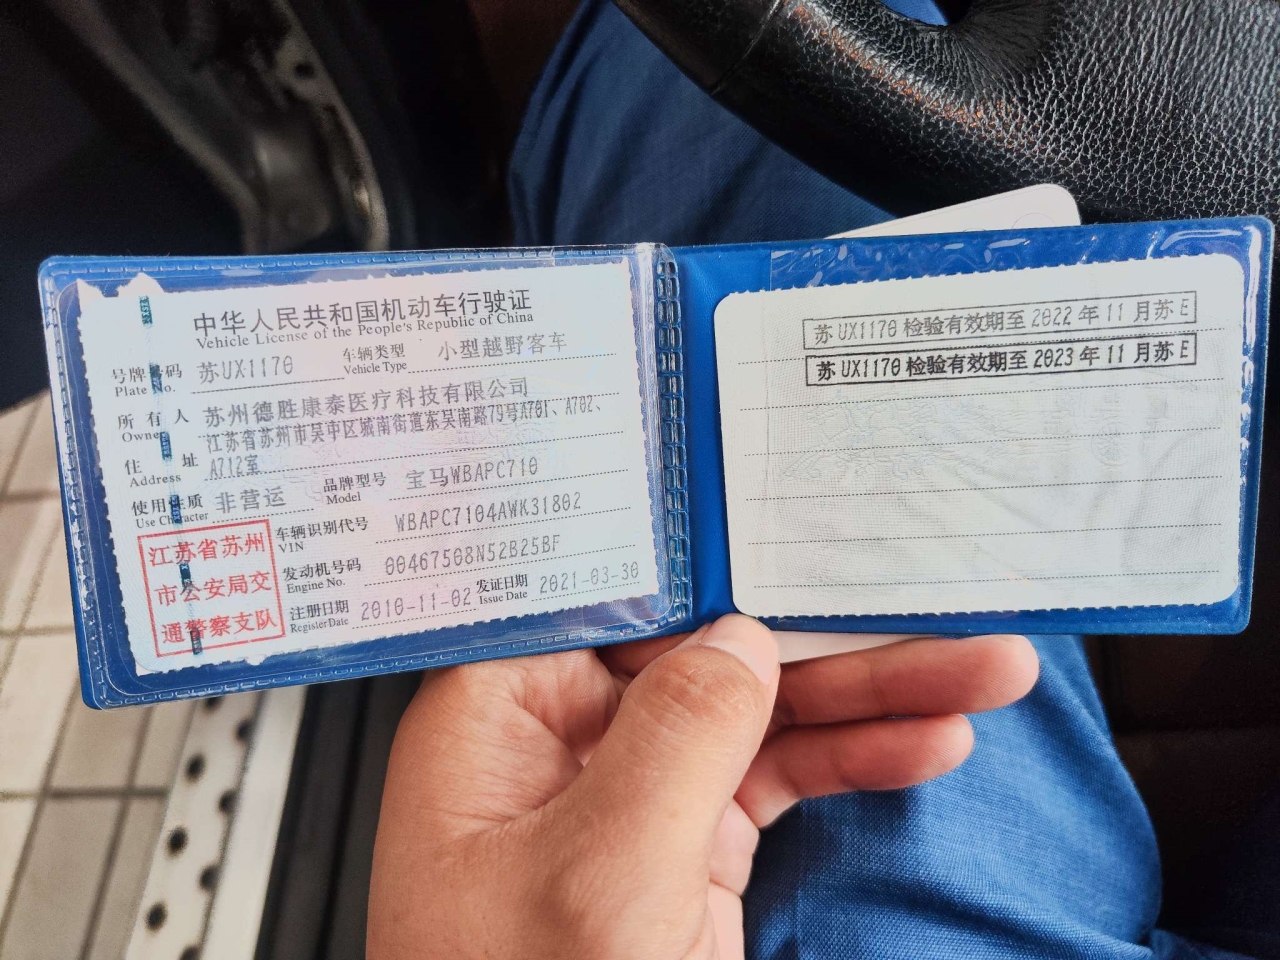 中华人民共和国机动车行驶证
Vehicle License of the People's Republic of China
号牌号码 Plate No. 苏UX1170 车辆类型 Vehicle Type 小型越野客车
所有人 Owner 苏州德胜康泰医疗科技有限公司
住址 Address 江苏省苏州市吴中区城南街道东吴南路79号A701、A702、
A712室
使用性质 Use Character 非营运 品牌型号 Model 宝马WBAPC710
车辆识别代号 VIN WBAPC7104AWK31802
发动机号码 Engine No. 00467508N52B25BF
注册日期 Register Date 2010-11-02 发证日期 Issue Date 2021-03-30
江苏省苏州
市公安局交
通警察支队
苏UX1170检验有效期至2022年11月苏E
苏UX1170检验有效期至2023年11月苏E